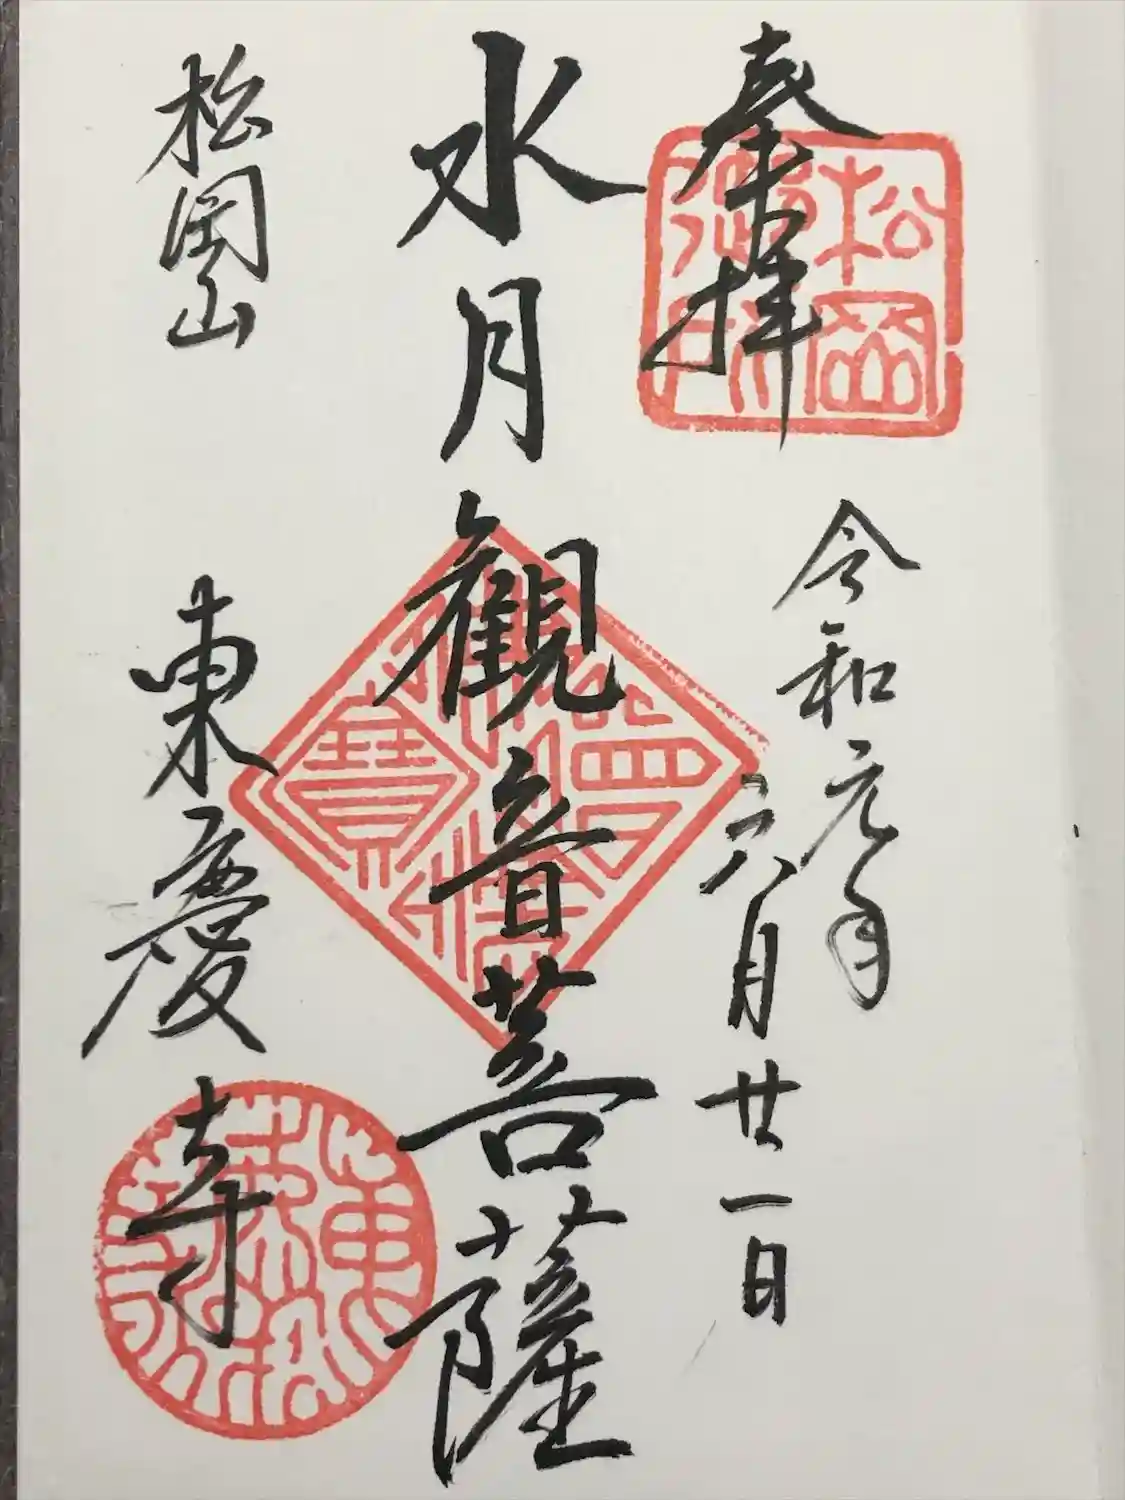 奉拝
松岡
令和元年
六月廿一日
水月観音菩薩
松岡山
東慶寺